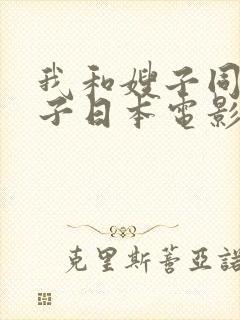 我和嫂子同
子日本電影
克里斯蒂亞諾